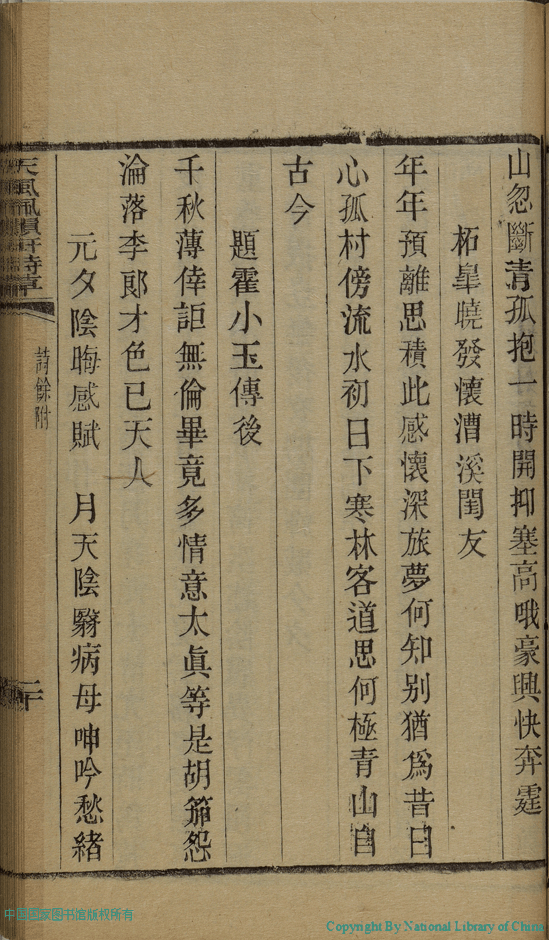 山忽斷清孤抱一時開抑塞高哦豪興快奔霆
柘臯曉發懷漕溪閨友
年年預離思積此感懷深旅夢何知别猶爲昔日
心孤村傍流水初日下寒林客道思何極青山自
古今
題霍小玉傳後
千秋薄倖詎無倫畢竟多情意太眞等是胡笳怨
淪落李郎才色已天人
元夕陰晦感賦 月天陰翳病母呻吟愁緒
天風佩韻軒詩草
詩餘附
二十
中国国家图书馆版权所有
Copyright By National Library of China